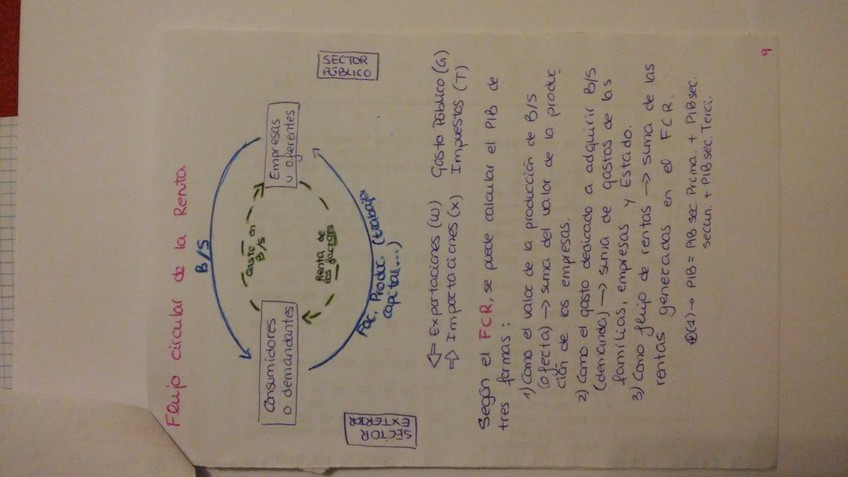 Flujo circular de la Renta
B/S
Gasto en
B/S
Consumidores
o demandantes
Empresas
u oferentes
Renta de
los factores
Fac. Produc. (trabajo
capital...)
SECTOR
EXTERIOR
SECTOR
PÚBLICO
⇐ Exportaciones (W) Gasto Público (G)
⇒ Importaciones (X) Impuestos (T)
Según el FCR, se puede calcular el PIB de
tres formas:
1) Como el valor de la producción de B/S
(oferta) → suma del valor de la produc
ción de las empresas.
2) Como el gasto dedicado a adquirir B/S
(demanda) → suma de gastos de las
familias, empresas y Estado.
3) Como flujo de rentas → suma de las
rentas generadas en el FCR.
(1) → PIB = PIB sec Prima. + PIB sec.
secun. + PIB sec Terci.
9